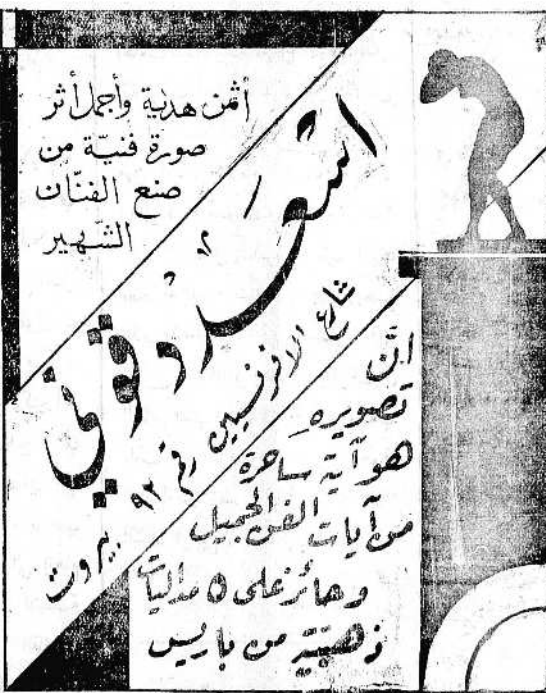 أثمن هدية وأجمل أثر
صورة فنيّة من
صنع الفنّان
الشهير
اسعد دقوني
شارع الافرنسيين رقم ٩٢ بيروت
انّ
تصويره
هو آية ساحرة
من آيات الفن الجميل
وحائز على ٥ مداليات
ذهبيّة من باريس